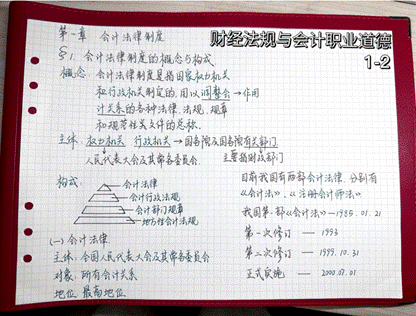 财经法规与会计职业道德
1-2
第一章 会计法律制度
§1. 会计法律制度的概念与构成
概念: 会计法律制度是指国家权力机关
和行政机关制定的, 用以调整会→作用
计关系的各种法律、法规、规章
和规范性文件的总称.
主体: 权力机关 行政机关→国务院及国务院有关部门
人民代表大会及其常务委员会. 主要指财政部门
构成:
会计法律
会计行政法规
会计部门规章
地方性会计法规
目前我国有两部会计法律, 分别有
《会计法》、《注册会计师法》
我国第一部《会计法》— 1985. 01. 21
第一次修订 — 1993
第二次修订 — 1999. 10. 31
正式实施 — 2000. 07. 01
(一) 会计法律
主体: 全国人民代表大会及其常务委员会
对象: 所有会计关系
地位: 最高地位